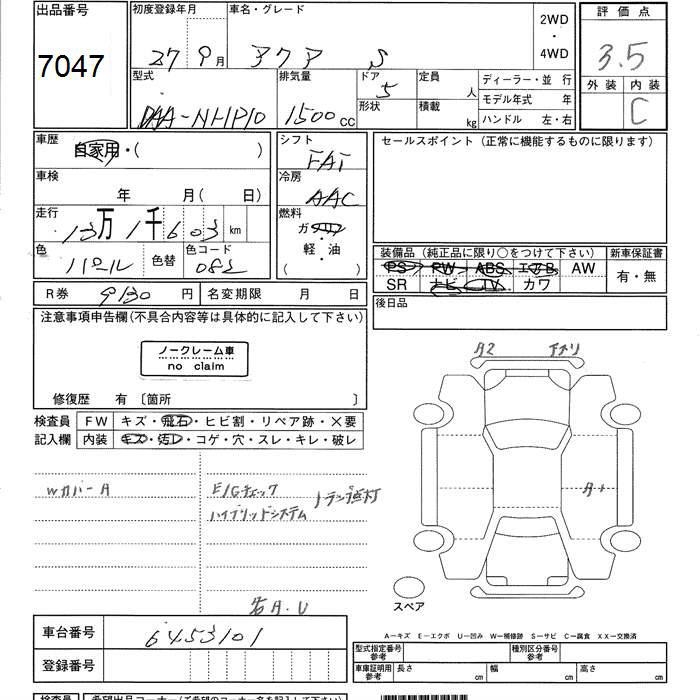 出品番号 初度登録年月 車名・グレード 2WD ・ 4WD 評価点
7047 27 9月 アクア S 3.5
型式 排気量 ドア 5 定員 人 ディーラー・並 行 外装 内装
DAA-NHP10 1500cc 形状 積載 kg モデル年式 年 C
ハンドル 左・右
車歴 自家用・( ) シフト FAT セールスポイント(正常に機能するものに限ります)
車検 年 月( 日) 冷房 AAC
走行 13万1千603km 燃料 ガソリン・軽・油 ( )
色 パール 色替 色コード 082 装備品(純正品に限り○をつけて下さい) 新車保証書
PS PW ABS エアB AW 有・無
SR ナビ TV カワ
R券 9130円 名変期限 月 日 後日品
注意事項申告欄(不具合内容等は具体的に記入して下さい)
ノークレーム車
no claim
修復歴 有 〔箇所 〕
検査員 FW キズ・飛石・ヒビ割・リペア跡・×要
記入欄 内装 キズ・汚レ・コゲ・穴・スレ・キレ・破レ
WカバーA E/Gチェック
ハイブリッドシステム ランプ点灯
A2
A+
右A.U
スペア
車台番号 6453101
登録番号
A-キズ E-エクボ U-凹み W-補修跡 S-サビ C-腐食 XX-交換済
型式指定番号 参考 種別区分番号 参考
車庫証明用 参考 長さ 幅 高さ